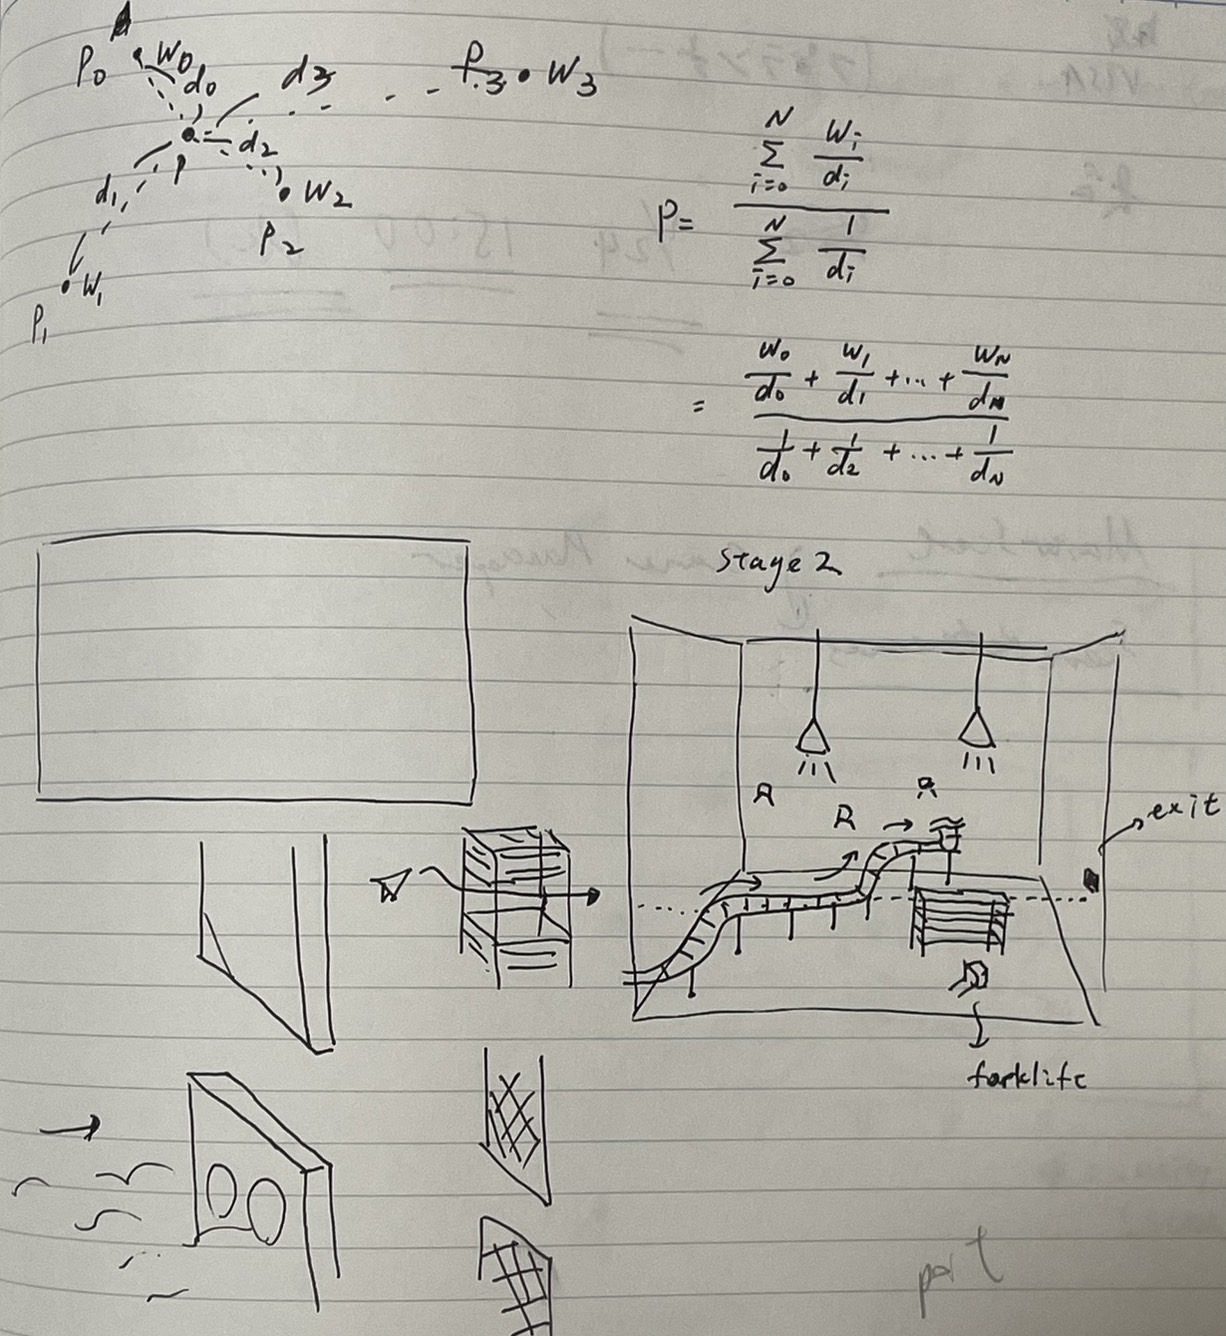 P0 W0 d0 d3 P3 W3
P d2
d1 W2
P2
W1
P1
P = \frac{\sum_{i=0}^{N} \frac{W_i}{d_i}}{\sum_{i=0}^{N} \frac{1}{d_i}}
= \frac{\frac{W_0}{d_0} + \frac{W_1}{d_1} + ... + \frac{W_N}{d_N}}{\frac{1}{d_0} + \frac{1}{d_2} + ... + \frac{1}{d_N}}
Stage 2
exit
forklift